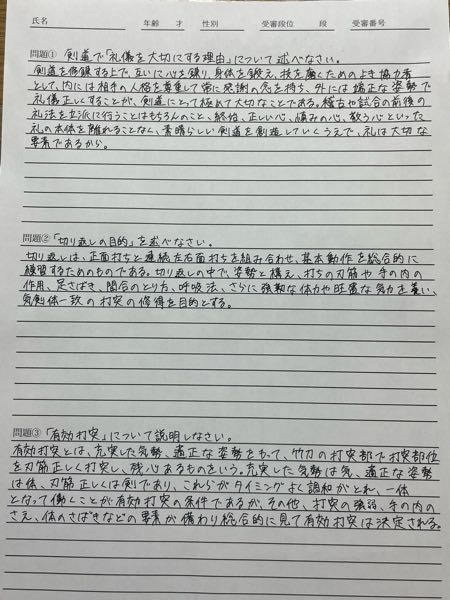 氏名 年齢 才 性別 受審段位 段 受審番号
問題① 剣道で「礼儀を大切にする理由」について述べなさい。
剣道を修錬する上で、互いに心を錬り、身体を鍛え、技を磨くためのよき協力者
として、内には相手の人格を尊重して常に感謝の念を持ち、外には端正な姿勢で
礼儀正しくすることが、剣道にとって極めて大切なことである。稽古や試合の前後の
礼法を立派に行うことはもちろんのこと、終始、正しい心、慎みの心、敬う心といった
礼の本体を離れることなく、素晴らしい剣道を創造していくうえで、礼は大切な
要素であるから。
問題② 「切り返しの目的」を述べなさい。
切り返しは、正面打ちと連続左右面打ちを組み合わせ、基本動作を総合的に
練習するためのものである。切り返しの中で、姿勢と構え、打ちの刃筋や手の内の
作用、足さばき、間合のとり方、呼吸法、さらに強靭な体力や旺盛な気力を養い、
気剣体一致の打突の修得を目的とする。
問題③ 「有効打突」について説明しなさい。
有効打突とは、充実した気勢、適正な姿勢をもって、竹刀の打突部で打突部位
を刃筋正しく打突し、残心あるものをいう。充実した気勢は気、適正な姿勢
は体、刃筋正しくは剣であり、これらがタイミングよく調和がとれ、一体
となって働くことが有効打突の条件であるが、その他、打突の強弱、手の内の
さえ、体のさばきなどの要素が備わり総合的に見て有効打突は決定される。